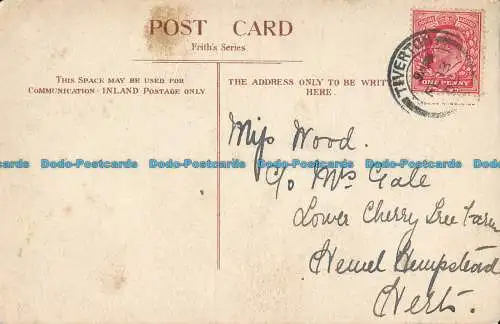 POST CARD
Frith's Series
THIS SPACE MAY BE USED FOR
COMMUNICATION INLAND POSTAGE ONLY
THE ADDRESS ONLY TO BE WRITTEN
HERE.
TIVERTON
ONE PENNY
Miss Wood.
C/o Mrs Gale
Lower Cherry Tree Farm
Hemel Hempstead
Herts.
Dodo-Postcards Dodo-Postcards Dodo-Postcards Dodo-Postcards
Dodo-Postcards Dodo-Postcards Dodo-Postcards Dodo-Postcards